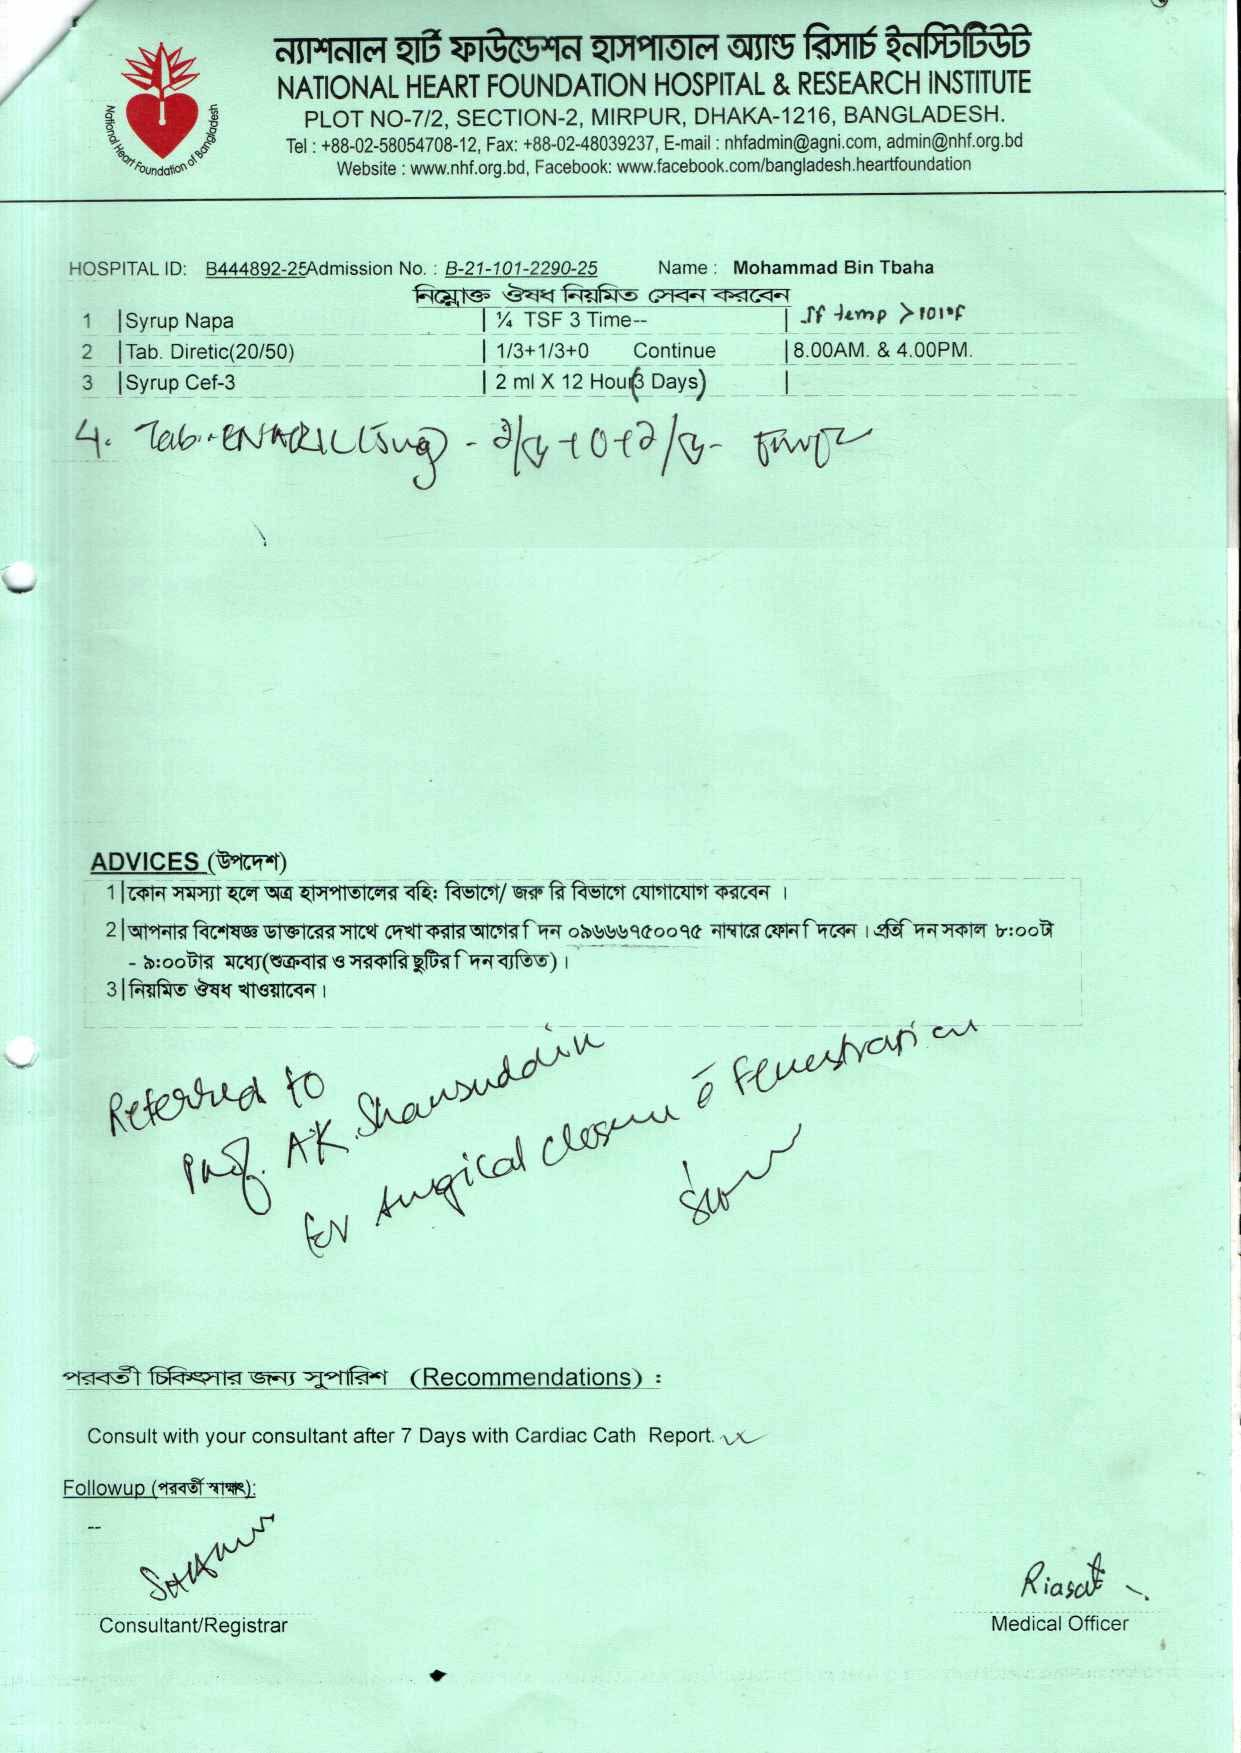 ন্যাশনাল হার্ট ফাউন্ডেশন হাসপাতাল অ্যান্ড রিসার্চ ইনস্টিটিউট
NATIONAL HEART FOUNDATION HOSPITAL & RESEARCH INSTITUTE
PLOT NO-7/2, SECTION-2, MIRPUR, DHAKA-1216, BANGLADESH.
Tel : +88-02-58054708-12, Fax: +88-02-48039237, E-mail : nhfadmin@agni.com, admin@nhf.org.bd
Website : www.nhf.org.bd, Facebook: www.facebook.com/bangladesh.heartfoundation
National Heart Foundation of Bangladesh
HOSPITAL ID: B444892-25 Admission No. : B-21-101-2290-25 Name : Mohammad Bin Tbaha
নিম্নোক্ত ঔষধ নিয়মিত সেবন করবেন
1 |Syrup Napa | ¼ TSF 3 Time-- | If temp >101°F
2 |Tab. Diretic(20/50) | 1/3+1/3+0 Continue |8.00AM. & 4.00PM.
3 |Syrup Cef-3 | 2 ml X 12 Hour(3 Days) |
4. Tab. ENARIL (5mg) -
ADVICES (উপদেশ)
1|কোন সমস্যা হলে অত্র হাসপাতালের বহি: বিভাগে/ জরু রি বিভাগে যোগাযোগ করবেন ।
2|আপনার বিশেষজ্ঞ ডাক্তারের সাথে দেখা করার আগের দিন ০৯৬৬৬৭৫০০৭৫ নাম্বারে ফোন দিবেন । প্রতি দিন সকাল ৮:০০টা
- ৯:০০টার মধ্যে(শুক্রবার ও সরকারি ছুটির দিন ব্যতিত) ।
3|নিয়মিত ঔষধ খাওয়াবেন ।
Referred to
Prof. A.K. Shamsuddin
for surgical closure c̄ fenestration
পরবর্তী চিকিৎসার জন্য সুপারিশ (Recommendations) :
Consult with your consultant after 7 Days with Cardiac Cath Report.
Followup (পরবর্তী স্বাক্ষাৎ):
--
Riasat
Consultant/Registrar Medical Officer